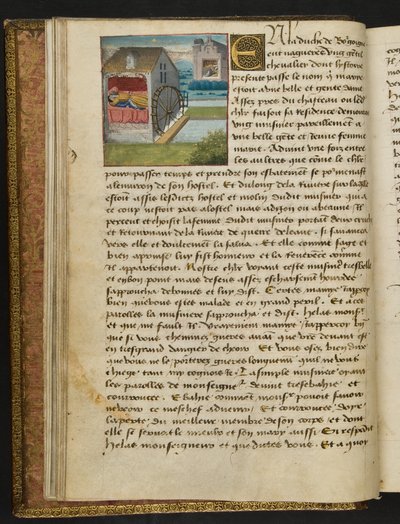 En la duché de Bourgoigne
eut nagueres ung gentil
chevalier dont lystoire
presente passe le nom q̃ marye
estoit a une belle et gente dame
Assez pres du chasteau ou led
chlr faisoit sa residence demouroit
ung musnier pareillement a
une belle gẽte et jeune femme
marye Advint une foiz entre
les aultres que cõme le chlr
pour passer temps et prendre son esbatement se pourmenast
alenviron de son hostel Et du long de la riviere sur laq̃lle
estoit assis lesdictz hostel et molin dudit musnier qui a
ce coup nestoit pas a lostel mais a dijon ou a beaune Il
perceut et choisit la femme dudit musnier portãt deux cruches
et retournant de la riviere de querir de leaue si savanca
vers elle et doulcement la salua Et elle comme sage et
bien aprinse luy fist honneur et la reverence comme
il appartenoit Nostre chlr voyant ceste musniere tresbelle
et en bon point mais de sens assez escharsement hourdee
sapproucha delle et luy dist Certes mamye japercoy
bien que vous estes malade et en grant peril Et a ces
parolles la musniere sapproucha et dist helas monsr
et que me fault il Vrayement mamye japercoy bie
que si vous cheminez gueres avãt que vre devant est
en tresgrand dangier de cheoir Et vous ose bien dire
que vous ne le porterez gueres longuement quil ne vous
chiee tant my cognois je La simple musniere oyant
les parolles de monseigneur devint tresbahie et
courroucee Esbahie comment monsr pouoit savoir
ne veoir ce meschef advenir Et courroucee doyr
la perte du meilleur membre de son corps et dont
elle se servoit le mieulx et son mary aussi Si respõdit
helas monseigneur et que dictes vous Et a quoy